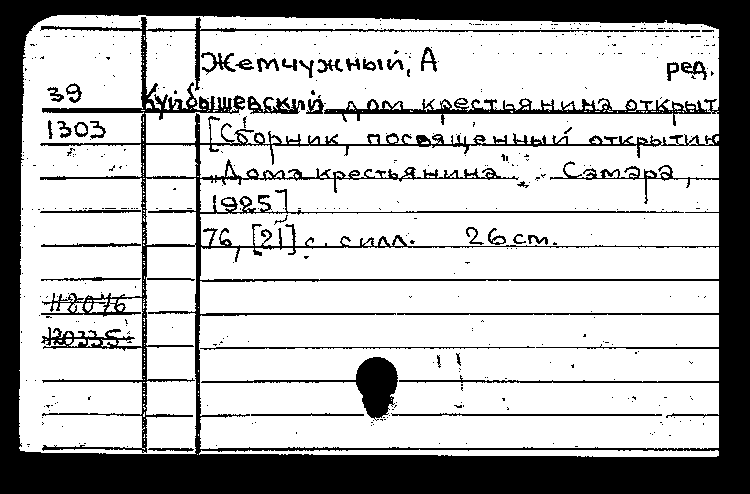 Жемчужный, А ред.
39 Куйбышевский дом крестьянина открыт
1303 [Сборник, посвященный открытию
„Дома крестьянина". Самара,
1925].
76, [21] с. с илл. 26 см.
112076
120335